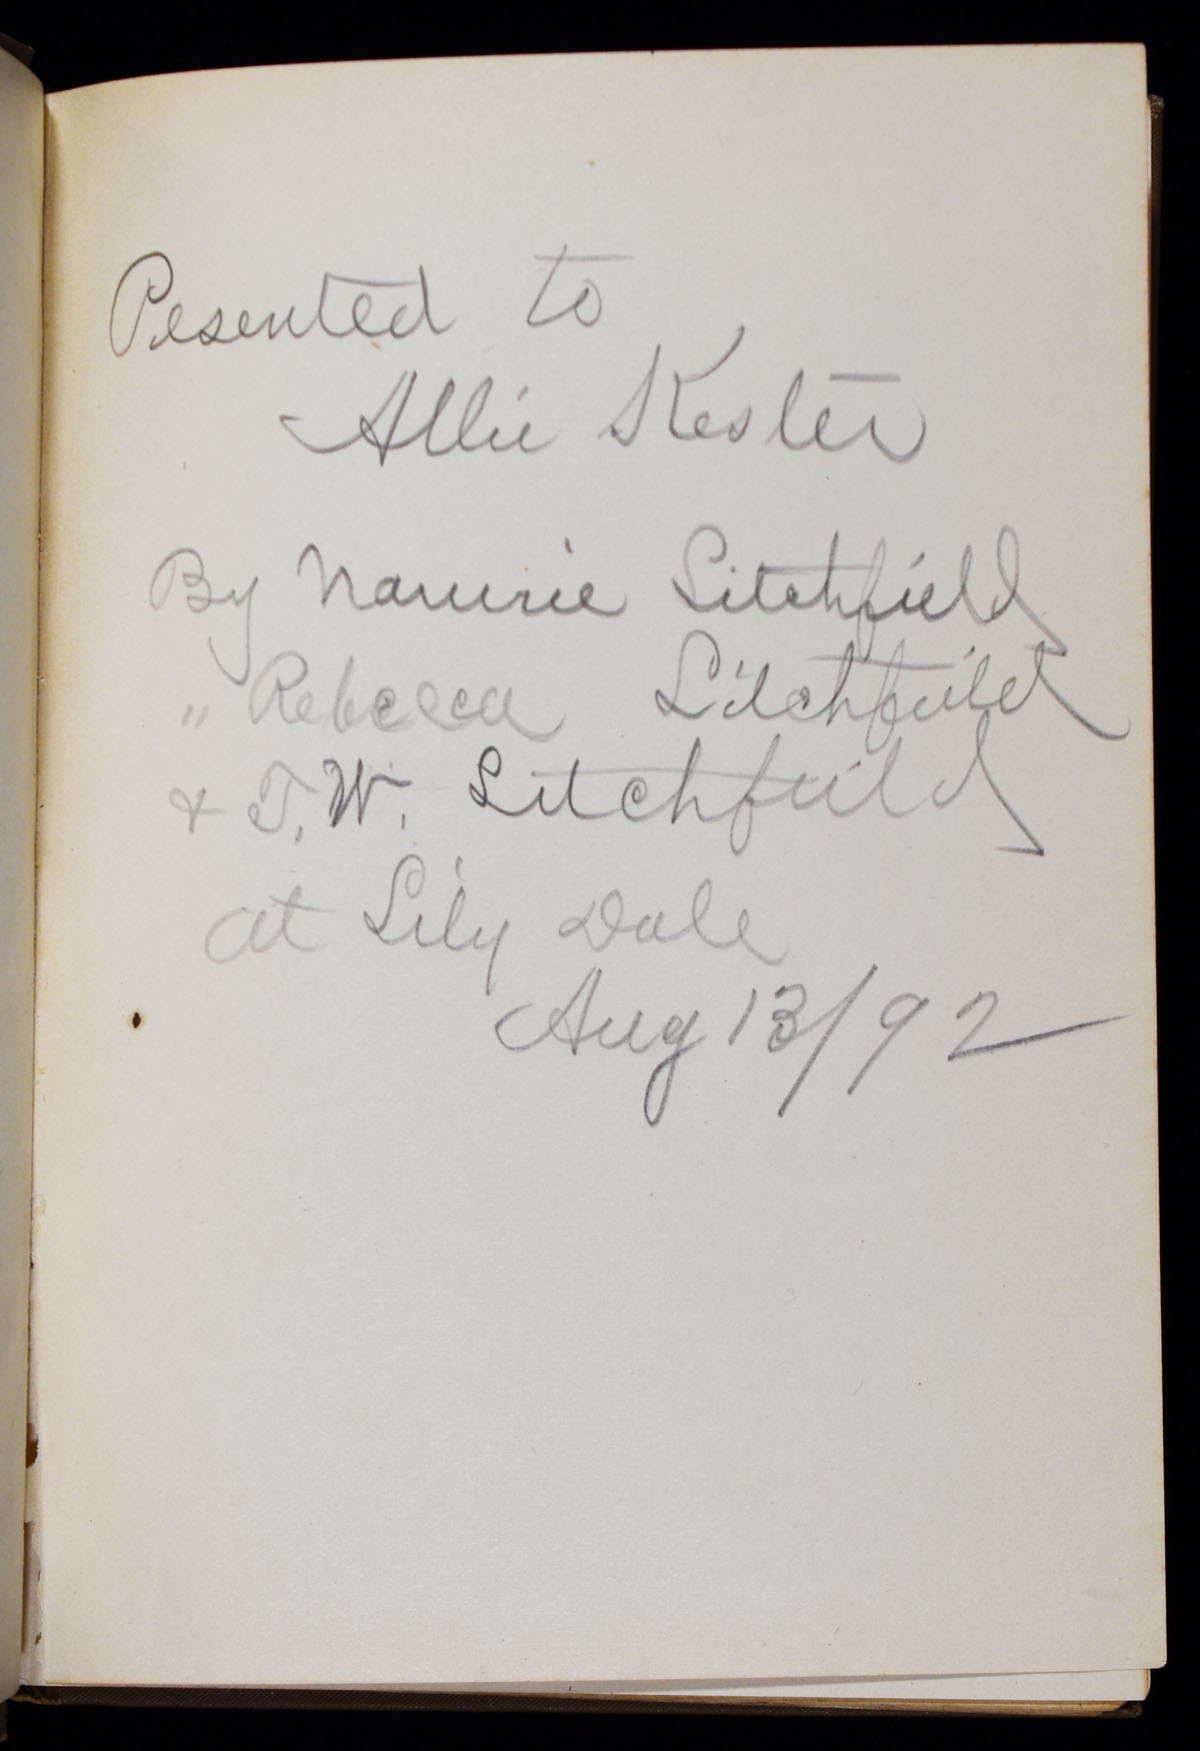 Presented to
Allie Kester
By Nannie Litchfield
" Rebecca Litchfield
& T. W. Litchfield
at Lily Dale
Aug 13/92